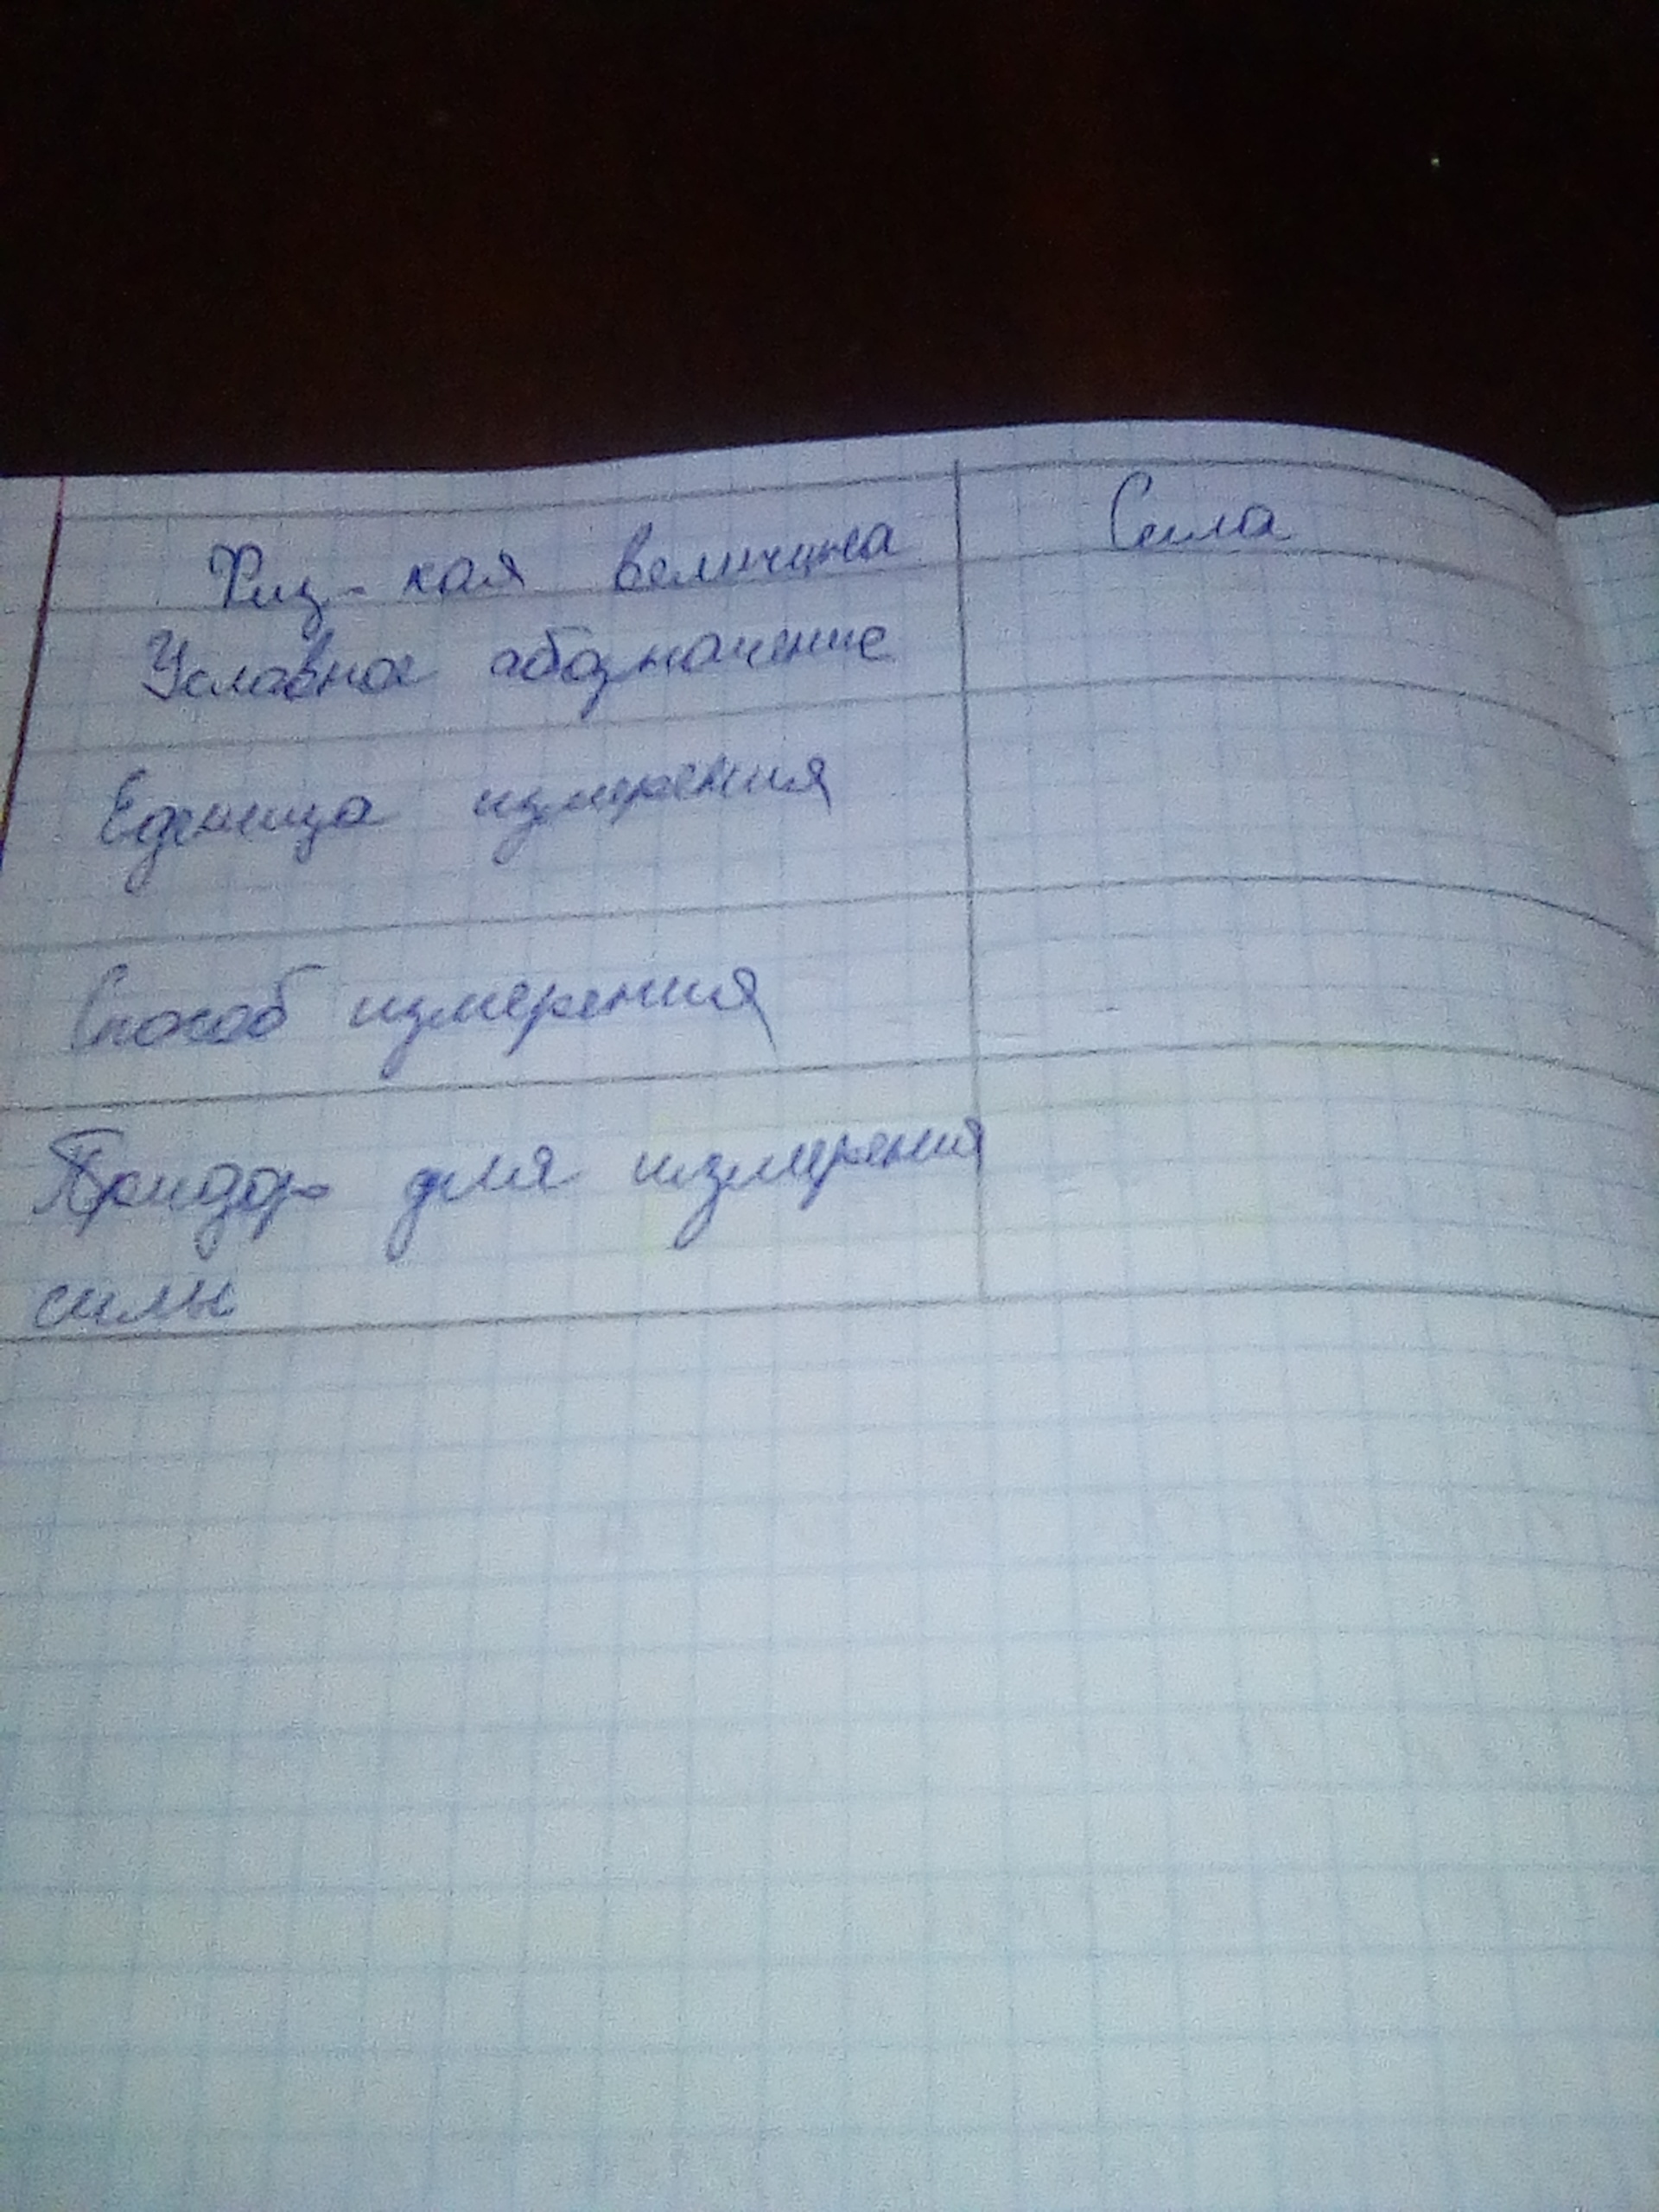 Физ-кая величина Сила
Условное обозначение
Еденица измерения
Способ измерения
Прибор для измерения
силы